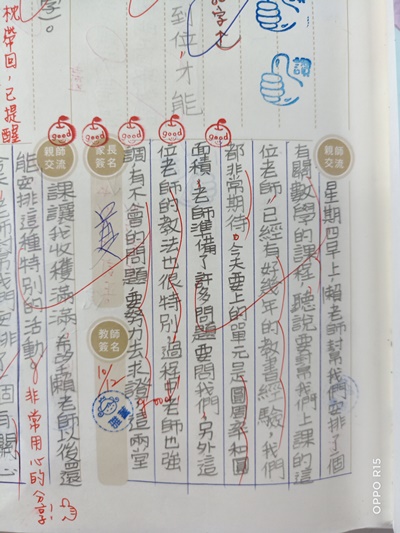 星期四早上,賴老師幫我們安排了一個
有關數學的課程,聽說要幫我們上課的這
位老師,已經有好幾年的教書經驗,我們
都非常期待。今天要上的單元是圓周率和圓
面積,老師準備了許多問題要問我們,另外這
位老師的教法也很特別,過程中老師也強
調有不會的問題,要努力去求證。這兩堂
課讓我收穫滿滿,希望賴老師以後還
能安排這種特別的活動。
非常用心的分享!
親師交流
家長簽名
教師簽名
10/12
親師交流
good
good
good
good
good
到位,才能
讚
枕帶回,已提醒
OPPO R15